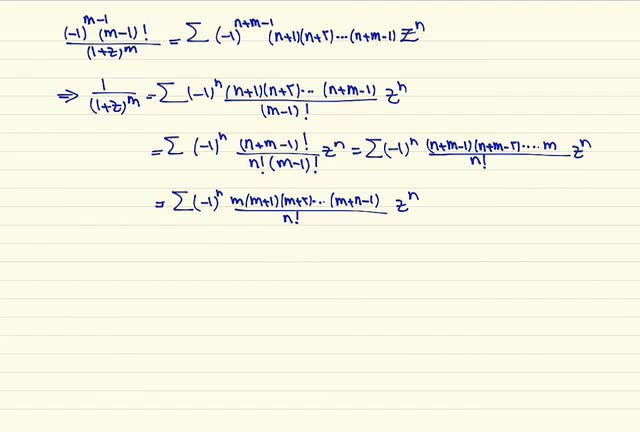 (-1)^{m-1} (m-1)! / (1+z)^m = Σ (-1)^{n+m-1} (n+1)(n+۲)...(n+m-1) z^n
⇒ 1 / (1+z)^m = Σ (-1)^n (n+1)(n+۲)... (n+m-1) / (m-1)! z^n
= Σ (-1)^n (n+m-1)! / n! (m-1)! z^n = Σ (-1)^n (n+m-1)(n+m-۲)....m / n! z^n
= Σ (-1)^n m(m+1)(m+۲)... (m+n-1) / n! z^n